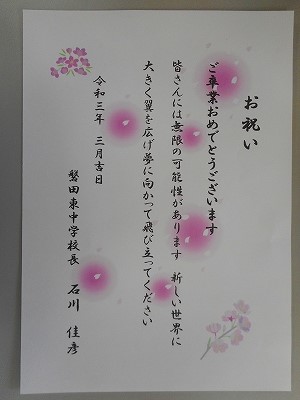 お祝い
ご卒業おめでとうございます
皆さんには無限の可能性があります 新しい世界に
大きく翼を広げ夢に向かって飛び立ってください
令和三年 三月吉日
磐田東中学校長 石川 佳彦